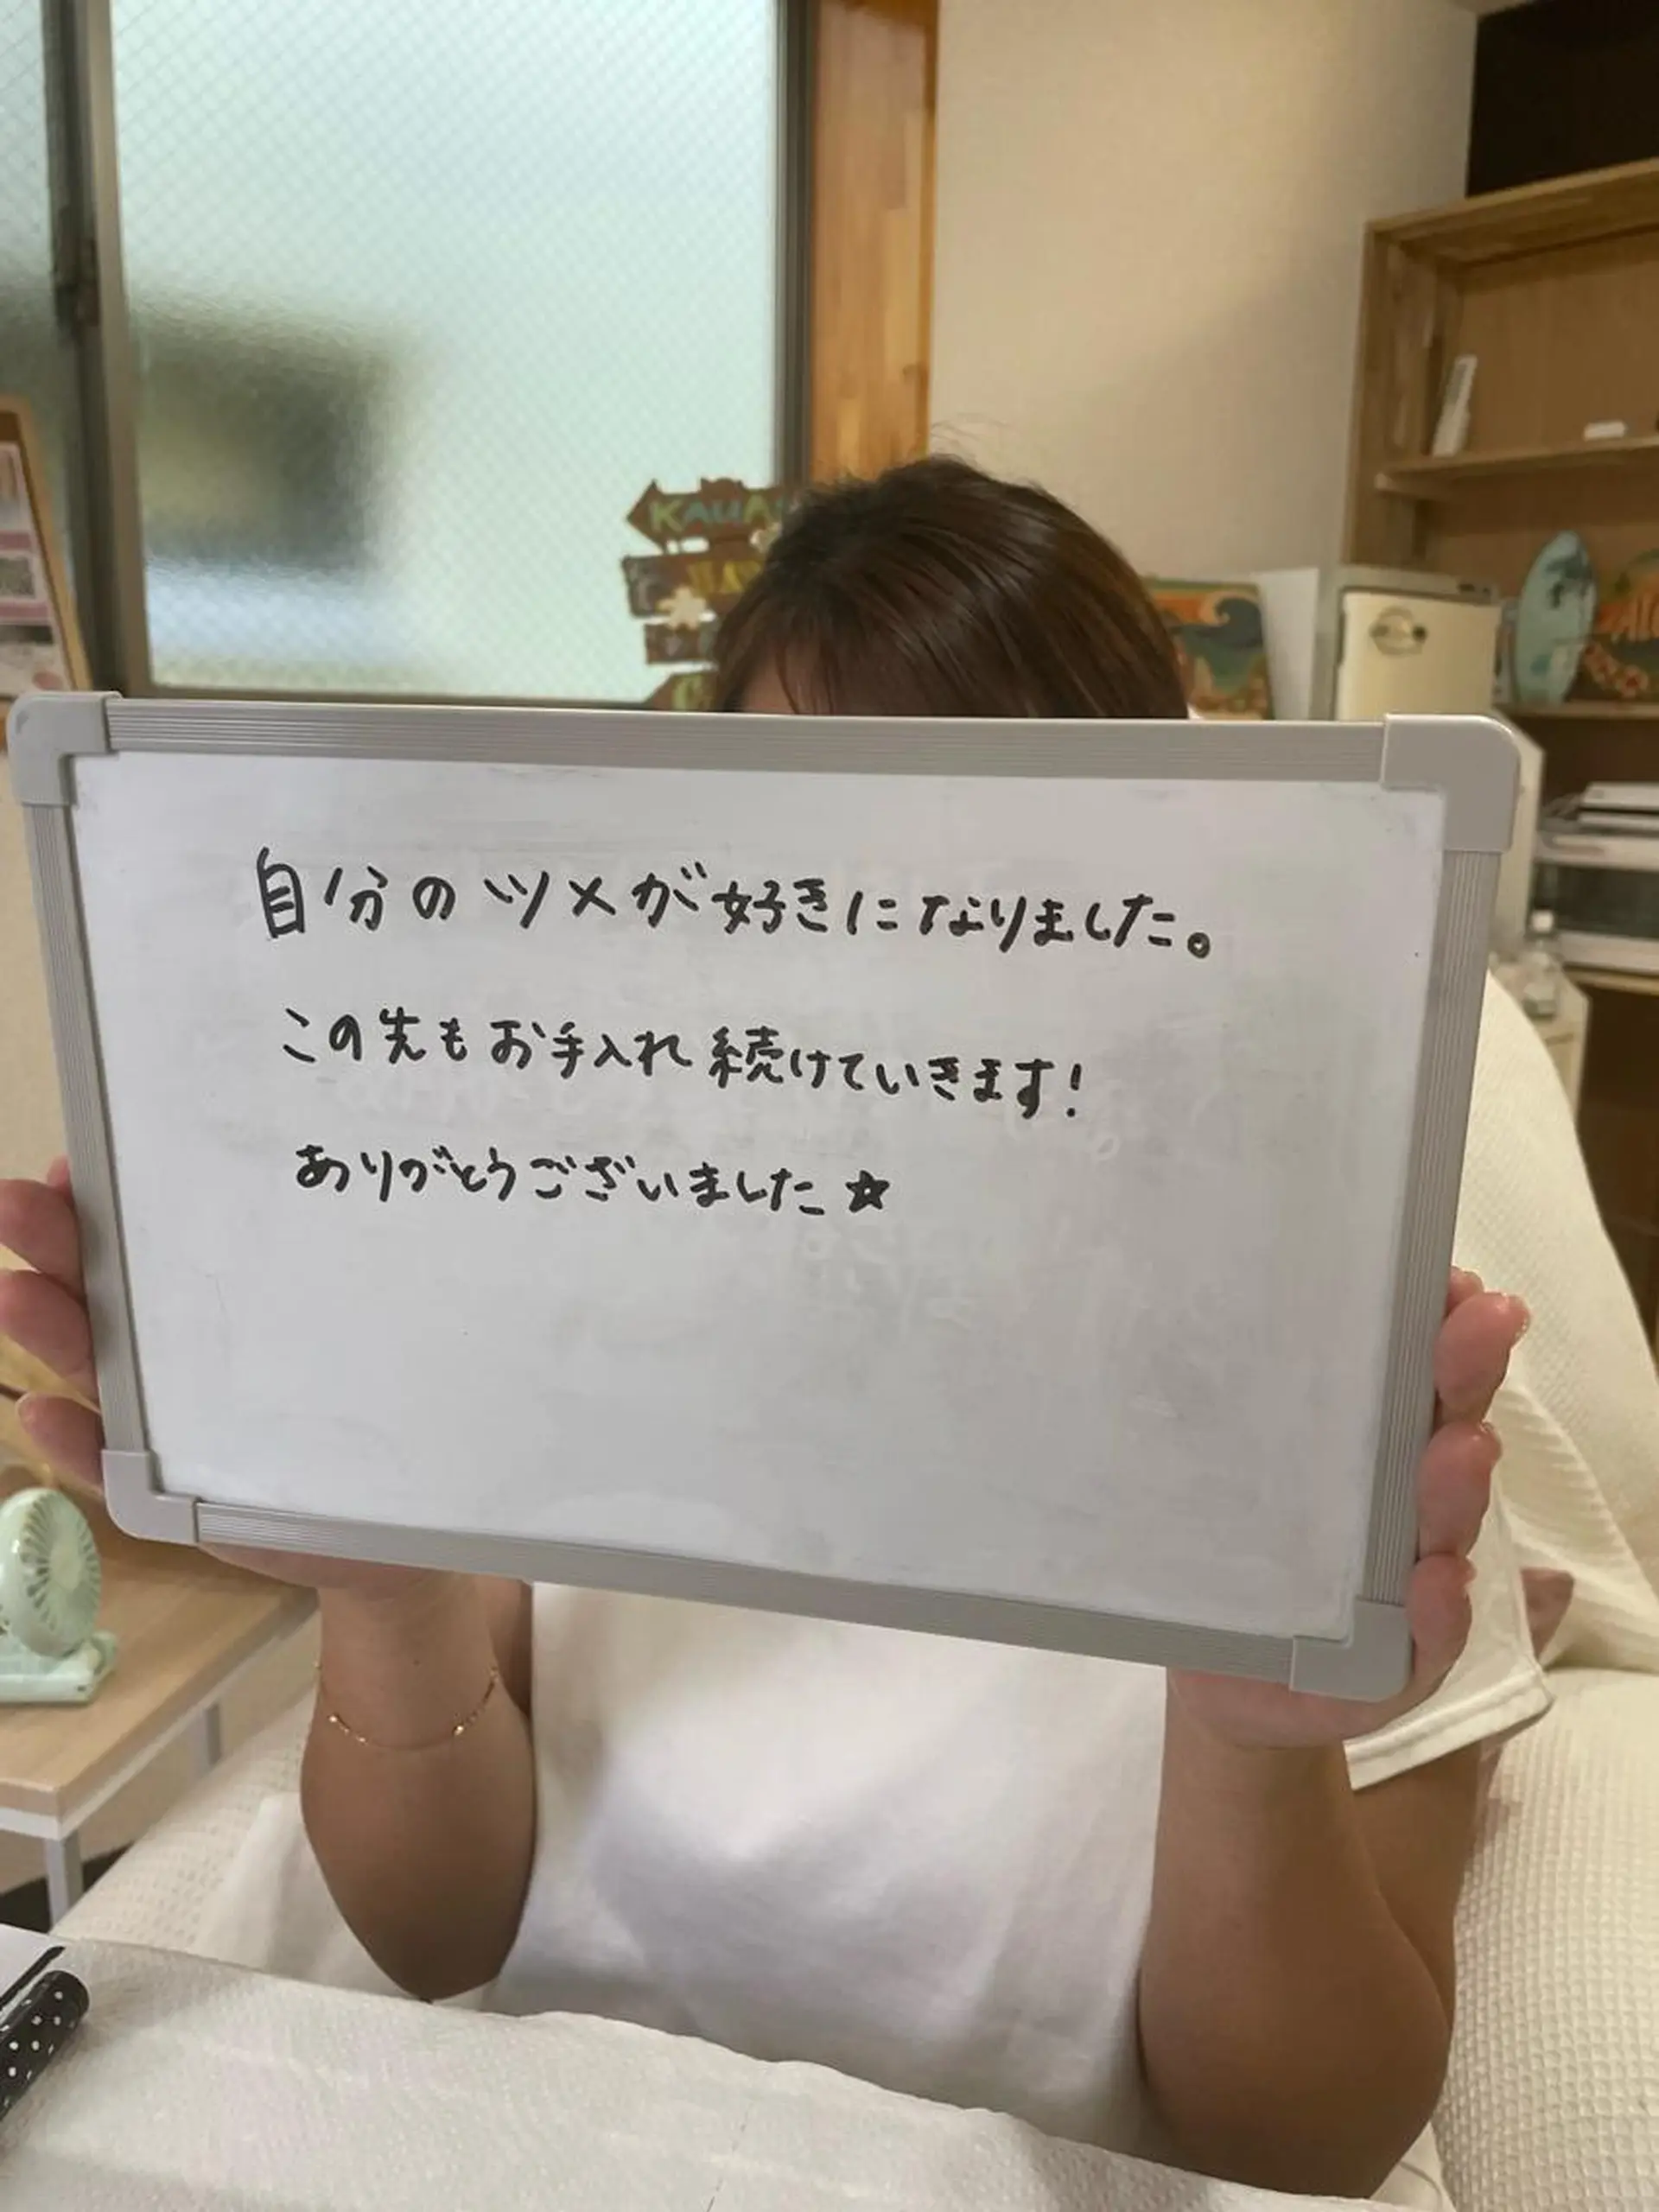 KAUAI
自分のツメが好きになりました。
この先もお手入れ続けていきます!
ありがとうございました☆